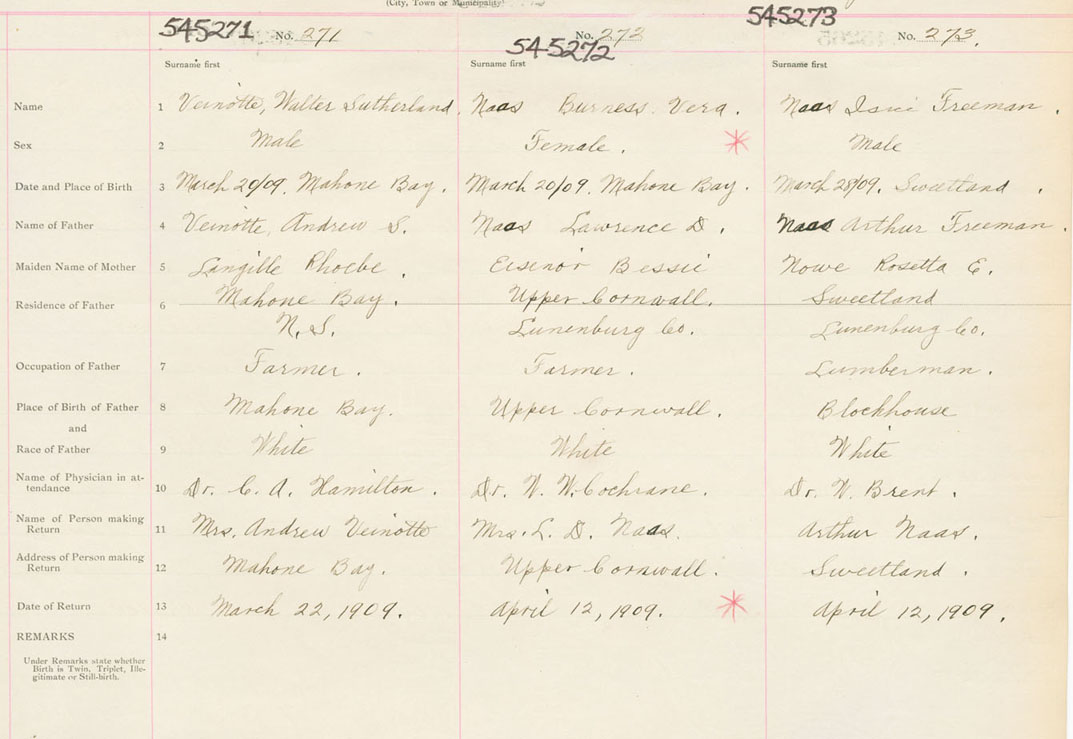 (City, Town or Municipality)
545271 No. 271 545272 No. 272 545273 No. 273.
Surname first Surname first Surname first
Name 1 Veinotte, Walter Sutherland Naas Burness Vera. Naas Freeman.
Sex 2 Male Female. Male
Date and Place of Birth 3 March 20/09, Mahone Bay. March 20/09, Mahone Bay. March 28/09, Sweetland.
Name of Father 4 Veinotte, Andrew S. Naas Lawrence D. Naas Arthur Freeman.
Maiden Name of Mother 5 Langille Phoebe. Eisenor Bessie Nowe Rosetta E.
Residence of Father 6 Mahone Bay. Upper Cornwall. Sweetland
N.S. Lunenburg Co. Lunenburg Co.
Occupation of Father 7 Farmer. Farmer. Lumberman.
Place of Birth of Father 8 Mahone Bay. Upper Cornwall. Blockhouse
and
Race of Father 9 White White White
Name of Physician in at-
tendance 10 Dr. C. A. Hamilton. Dr. W. W. Cochrane. Dr. W. Brent.
Name of Person making
Return 11 Mrs. Andrew Veinotte Mrs. L. D. Naas. Arthur Naas.
Address of Person making
Return 12 Mahone Bay. Upper Cornwall. Sweetland.
Date of Return 13 March 22, 1909. April 12, 1909. April 12, 1909.
REMARKS 14
Under Remarks state whether
Birth is Twin, Triplet, Ille-
gitimate or Still-birth.